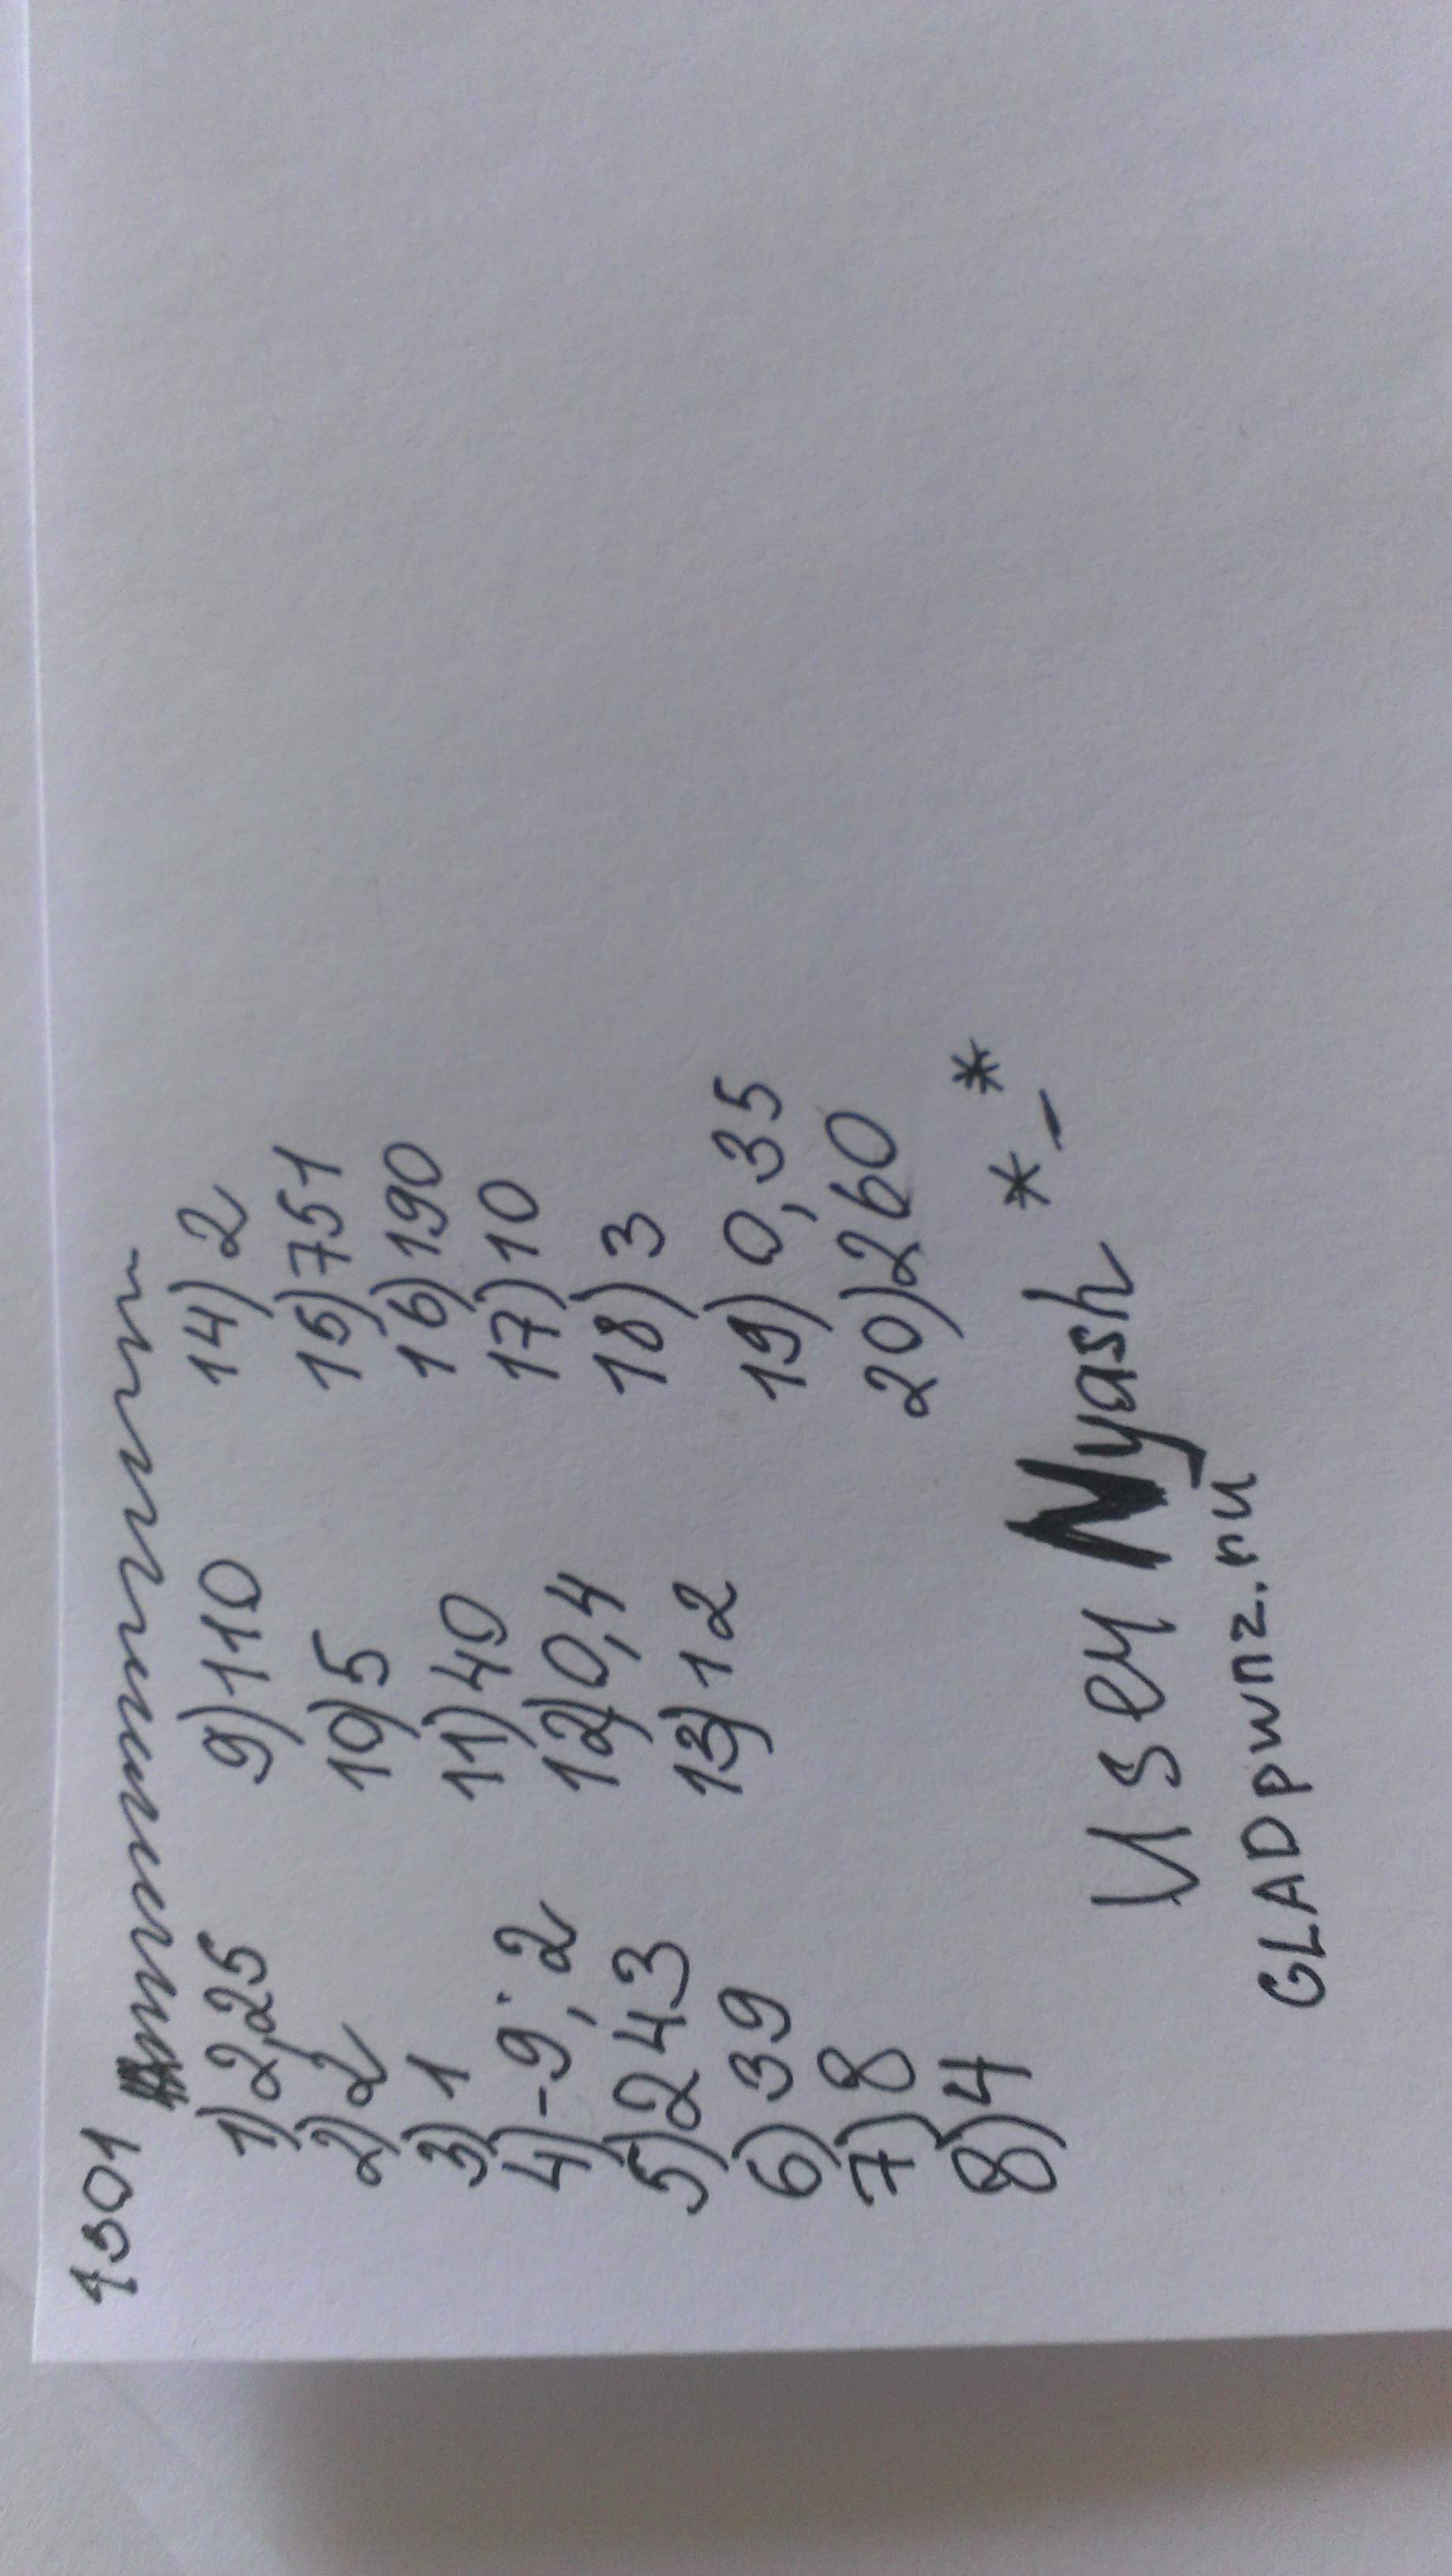 1301
1) 225
2) 2
3) 1
4) -9,2
5) 243
6) 39
7) 8
8) 4
9) 110
10) 5
11) 49
12) 0,4
13) 12
14) 2
15) 751
16) 190
17) 10
18) 3
19) 0,35
20) 260
User Nyash *_*
GLADpwnz.ru